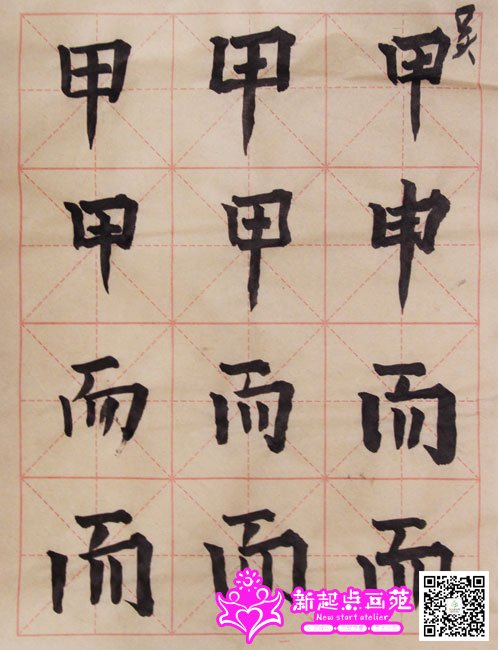 吴
甲 甲 甲
甲 甲 申
而 而 而
而 而 而
新起点画苑
New start atelier